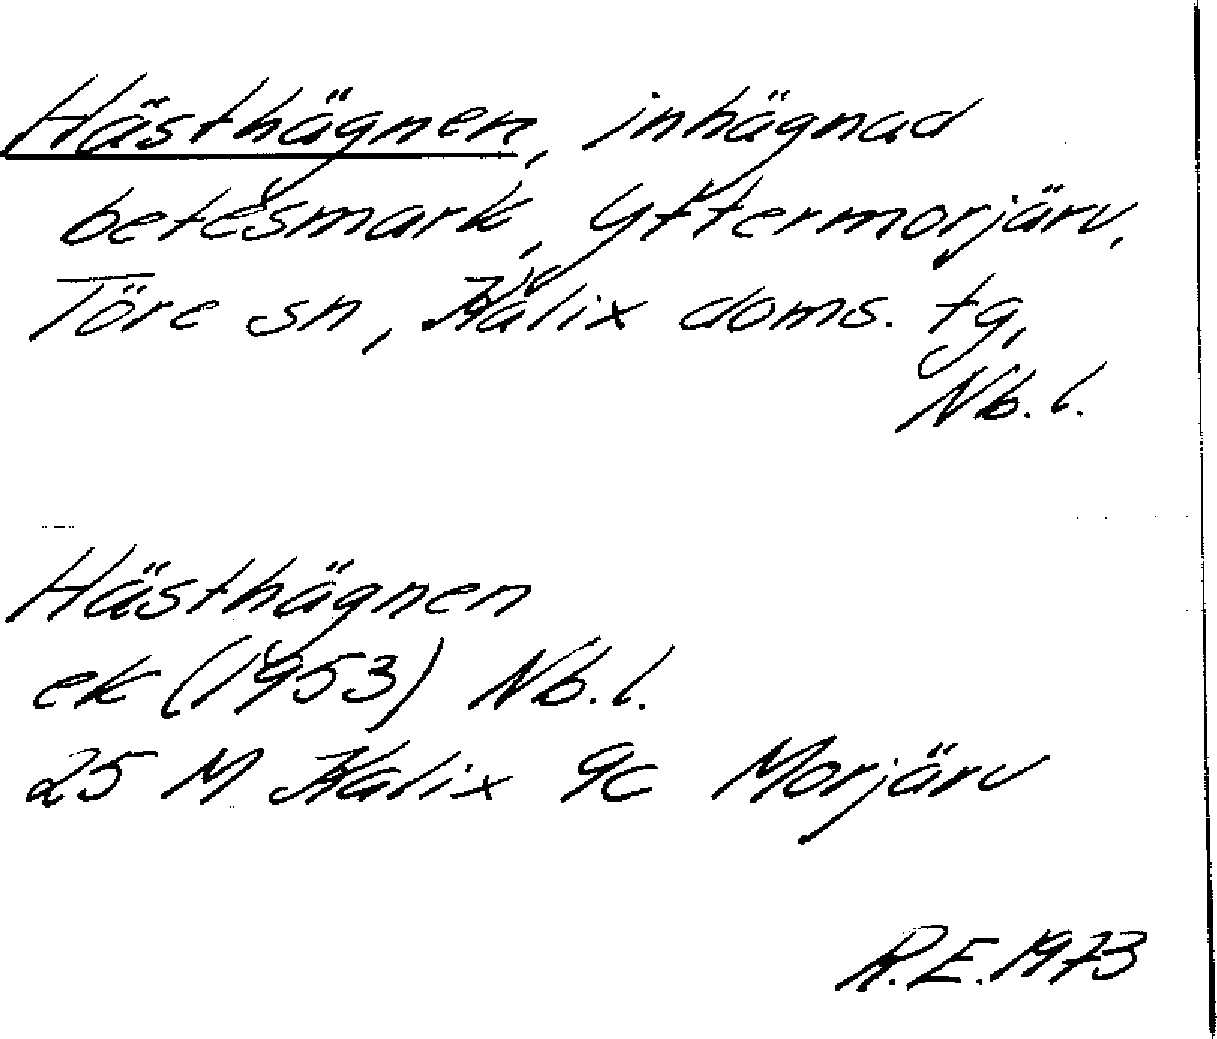 Hästhägnen, inhägnad
betesmark, Yttermorjärv,
Töre sn, Kalix doms. tg,
Nb. l.
Hästhägnen
ek (1953) Nb. l.
25 M Kalix 9c Morjärv
R.E. 1973